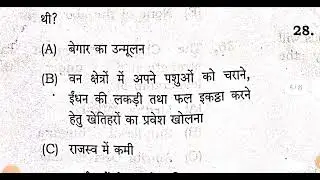 थी?
28.
(A) बेगार का उन्मूलन
(B) वन क्षेत्रों में अपने पशुओं को चराने,
ईंधन की लकड़ी तथा फल इकट्ठा करने
हेतु खेतिहरों का प्रवेश खोलना
(C) राजस्व में कमी